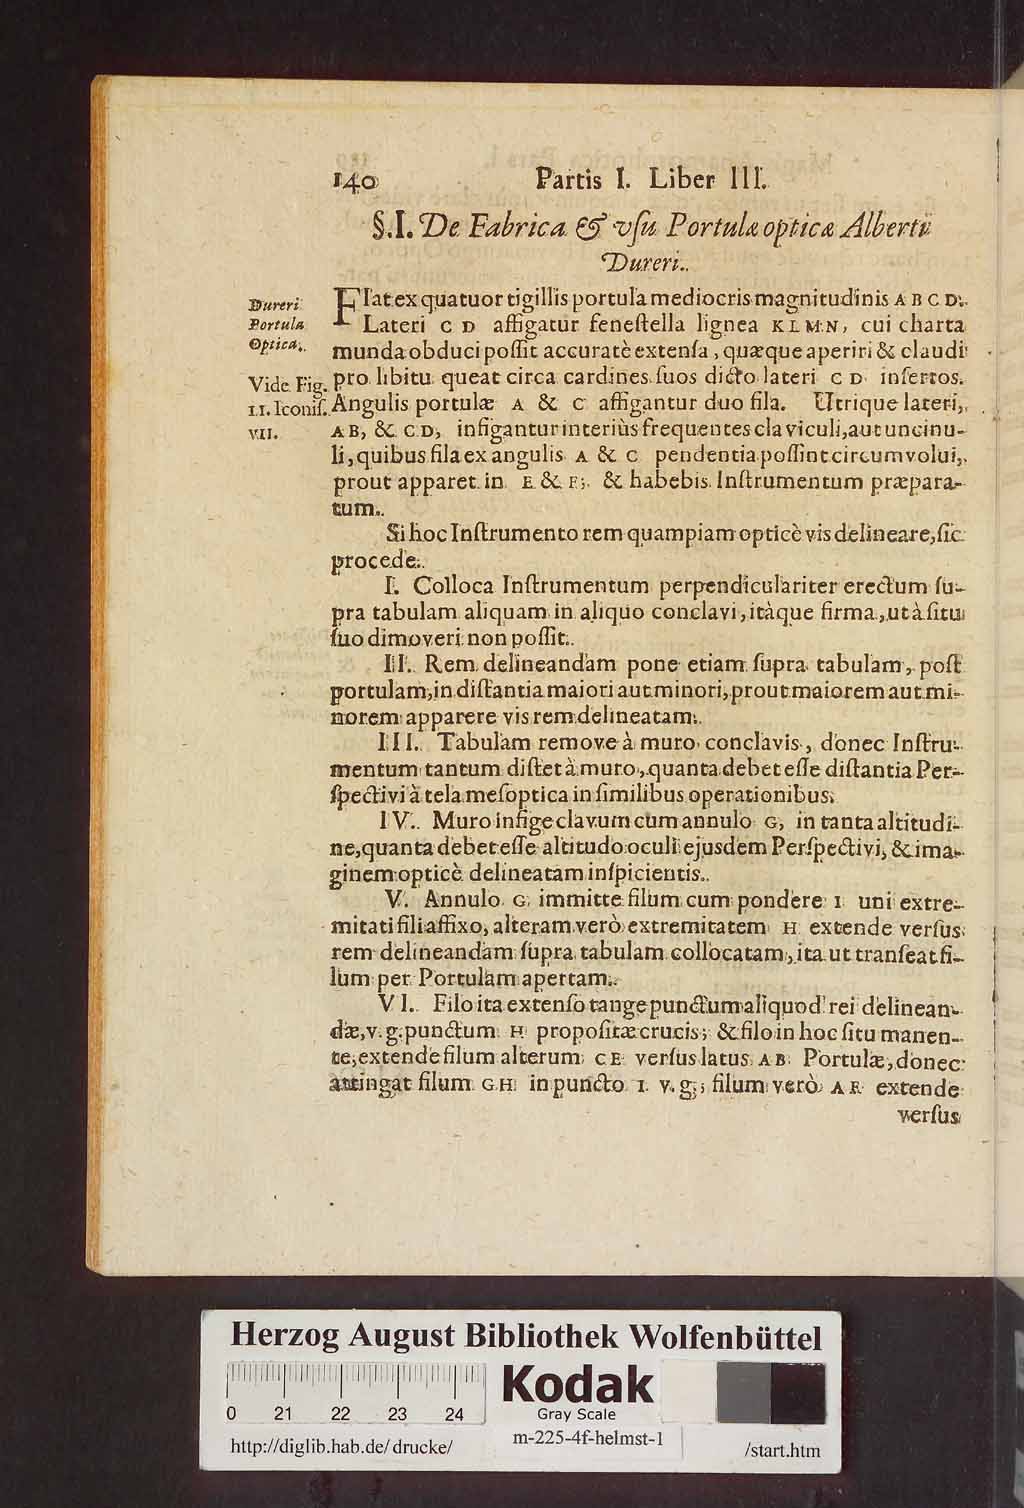 140 Partis I. Liber III.
§. I. De Fabrica & vſu Portulæ opticæ Alberti
Dureri.
Dureri
Portula
Optica.
Vide Fig.
II. Iconiſ.
VII.
Flat ex quatuor tigillis portula mediocris magnitudinis A B C D.
Lateri C D affigatur feneſtella lignea K L M N, cui charta
munda obduci poſſit accuratè extenſa, quæque aperiri & claudi
pro libitu queat circa cardines ſuos dicto lateri C D inſertos.
Angulis portulæ A & C affigantur duo fila. Utrique lateri,
A B, & C D, infigantur interiùs frequentes claviculi, aut uncinu-
li, quibus fila ex angulis A & C pendentia poſſint circumvolui,
prout apparet in E & F; & habebis Inſtrumentum præpara-
tum.
Si hoc Inſtrumento rem quampiam opticè vis delineare, ſic
procede.
I. Colloca Inſtrumentum perpendiculariter erectum ſu-
pra tabulam aliquam in aliquo conclavi, itàque firma, ut à ſitu
ſuo dimoveri non poſſit.
II. Rem delineandam pone etiam ſupra tabulam, poſt
portulam, in diſtantia maiori aut minori, prout maiorem aut mi-
norem apparere vis rem delineatam.
III. Tabulam remove à muro conclavis, donec Inſtru-
mentum tantum diſtet à muro, quanta debet eſſe diſtantia Per-
ſpectivi à tela meſoptica in ſimilibus operationibus.
IV. Muro infige clavum cum annulo G, in tanta altitudi-
ne, quanta debet eſſe altitudo oculi ejusdem Perſpectivi, & ima-
ginem opticè delineatam inſpicientis.
V. Annulo G immitte filum cum pondere I uni extre-
mitati fili affixo, alteram verò extremitatem H extende verſus
rem delineandam ſupra tabulam collocatam, ita ut tranſeat fi-
lum per Portulam apertam.
VI. Filo ita extenſo tange punctum aliquod rei delinean-
dæ, v. g. punctum H propoſitæ crucis; & filo in hoc ſitu manen-
te, extende filum alterum C E verſus latus A B Portulæ, donec
attingat filum G H in puncto I. v. g.; filum verò A F extende
verſus
Herzog August Bibliothek Wolfenbüttel
0 21 22 23 24
Kodak
Gray Scale
http://diglib.hab.de/drucke/ m-225-4f-helmst-1 /start.htm